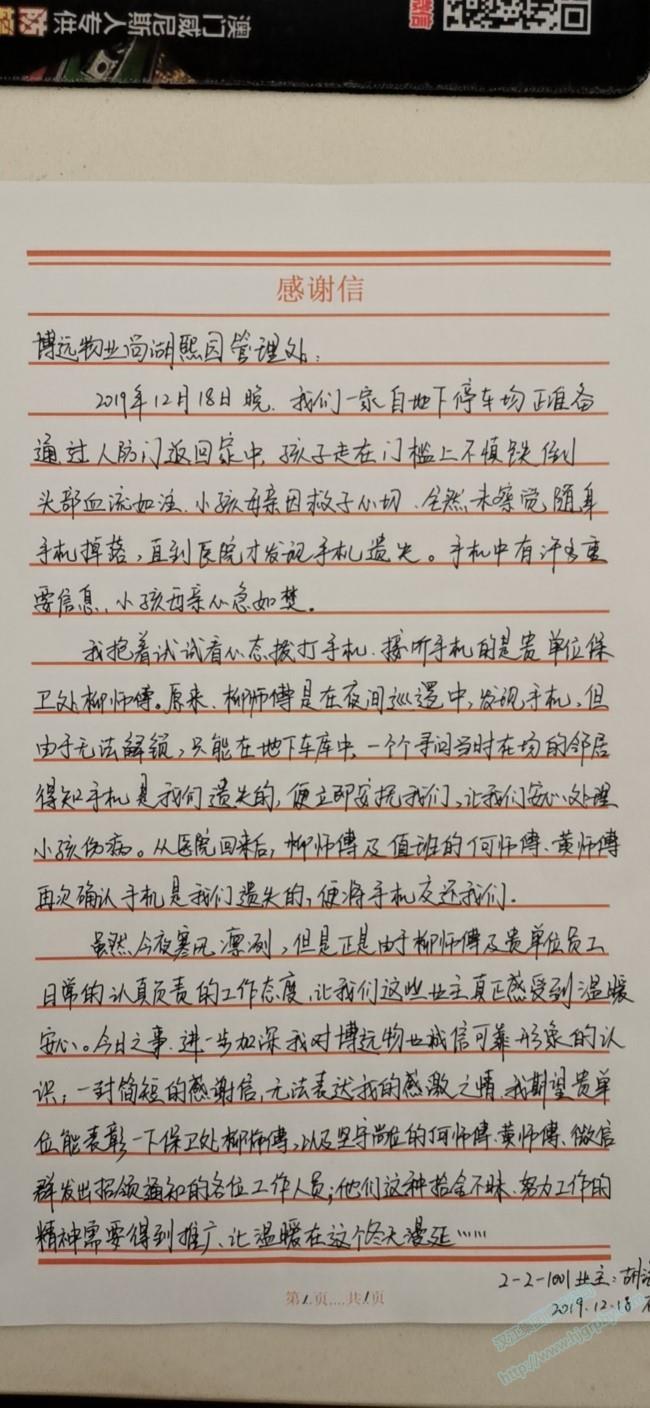 澳门威尼斯人专供
微信
感谢信
博远物业尚湖熙园管理处:
2019年12月18日晚,我们一家自地下停车场正准备
通过人防门返回家中,孩子走在门槛上不慎跌倒
头部血流如注,小孩母亲因救子心切,全然未察觉随身
手机掉落,直到医院才发现手机遗失。手机中有许多重
要信息,小孩母亲心急如焚。
我抱着试试看心态拨打手机,接听手机的是贵单位保
卫处柳师傅。原来,柳师傅是在夜间巡逻中,发现手机,但
由于无法解锁,只能在地下车库中,一个个寻问当时在场的邻居
得知手机是我们遗失的,便立即安抚我们,让我们安心处理
小孩伤病。从医院回来后,柳师傅及值班的何师傅、黄师傅
再次确认手机是我们遗失的,便将手机交还我们.
虽然今夜寒风凛冽,但是正是由于柳师傅及贵单位员工
日常的认真负责的工作态度,让我们这些业主真正感受到温暖
安心。今日之事,进一步加深我对博远物业诚信可靠形象的认
识;一封简短的感谢信,无法表达我的感激之情,我期望贵单
位能表彰一下保卫处柳师傅,以及坚守岗位的何师傅、黄师傅、微信
群发出招领通知的各位工作人员;他们这种拾金不昧、努力工作的
精神需要得到推广、让温暖在这个冬天漫延……
第1页....共1页
2-2-1001业主:胡
2019.12.18